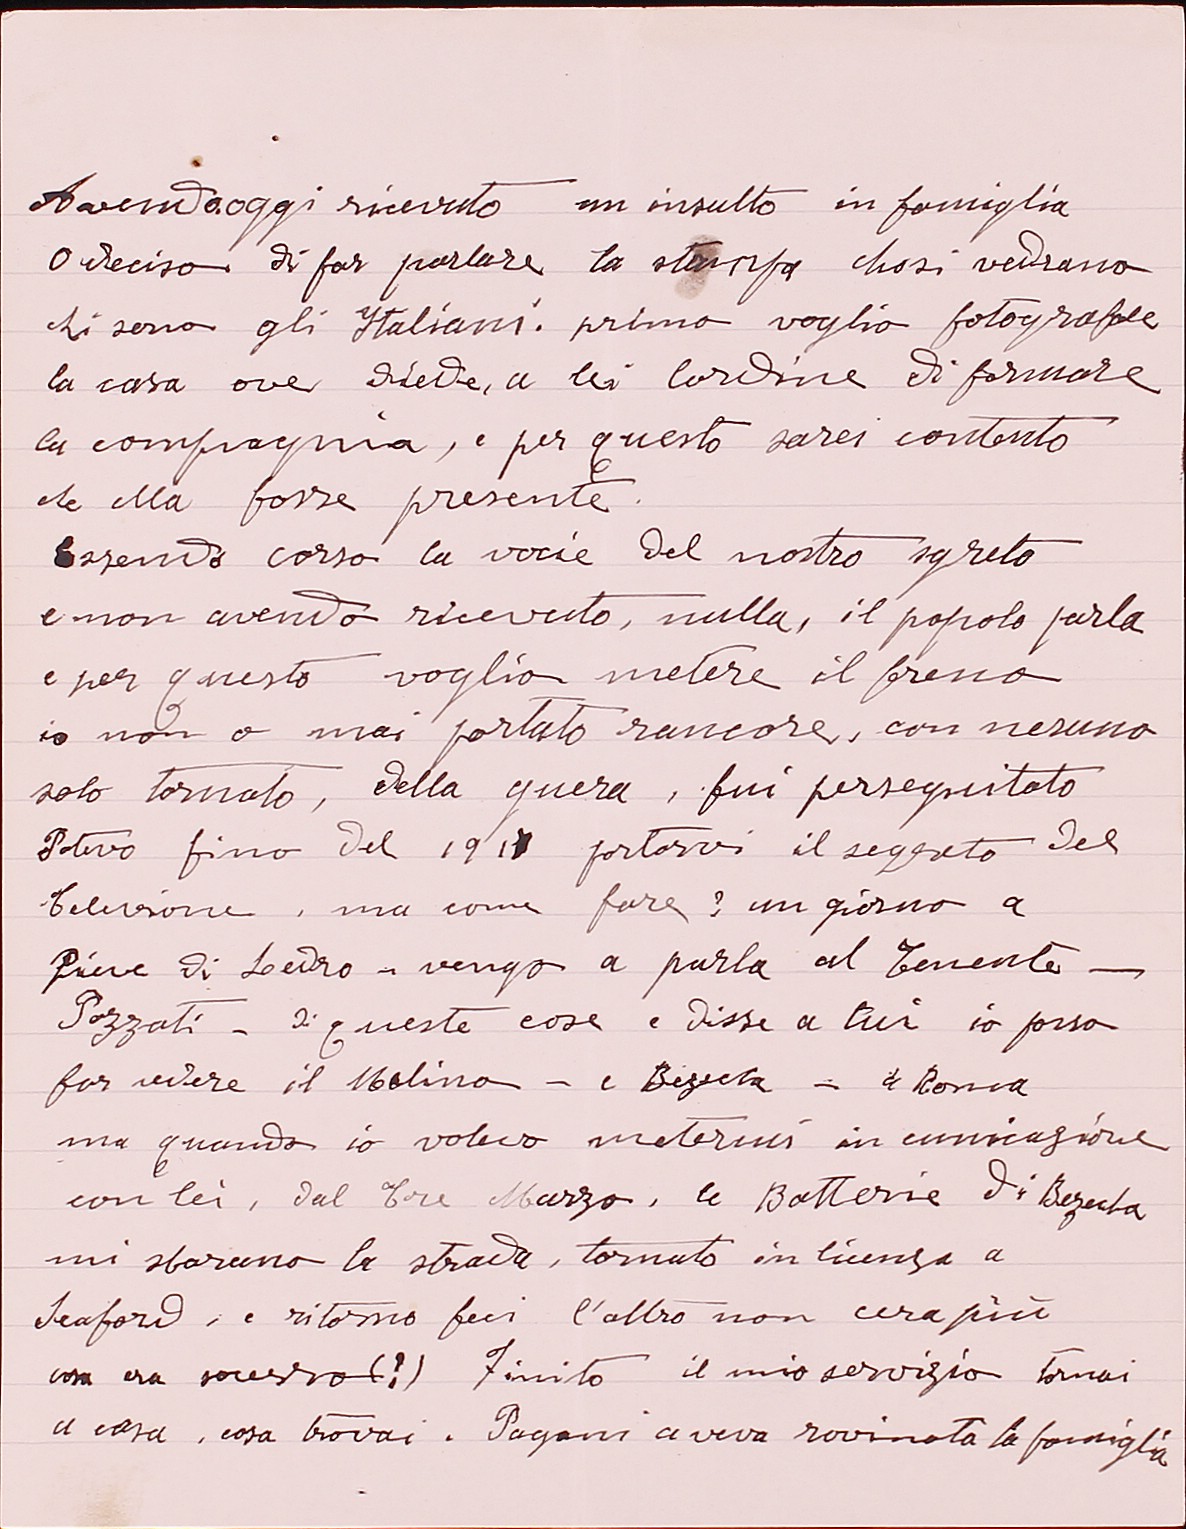 Avendo oggi ricevuto un insulto in famiglia
O deciso di far parlare la stampa chosi vedrano
chi sono gli Italiani. primo voglio fotografare
la casa ove diede, a lei lordine di formare
la compagnia, e per questo sarei contento
che ella fosse presente.
Essendo corso la vocie del nostro sgreto
e non avendo ricevuto, nulla, il popolo parla
e per questo voglio metere il freno
io non o mai portato rancore, con nesuno
solo tornato, della guera, fui perseguitato
Potevo fino del 191 portarvi il segreto del
Televisione, ma come fare? un giorno a
Pieve di Ledro - vengo a parla al Tenente -
Pozzati - di queste cose e disse a lui io posso
far vedere il Molino - e Bezecta - a Roma
ma quando io volevo metermi in cunicazione
con lei, dal Tre Marzo, le Batterie di Bezecta
mi sbarano la strada, tornato in licenza a
Seaford, e ritorno feci l'altro non cera più
cosa era sucesso (?) Finito il mio servizio tornai
a casa, cosa trovai. Pagani aveva rovinata la famiglia